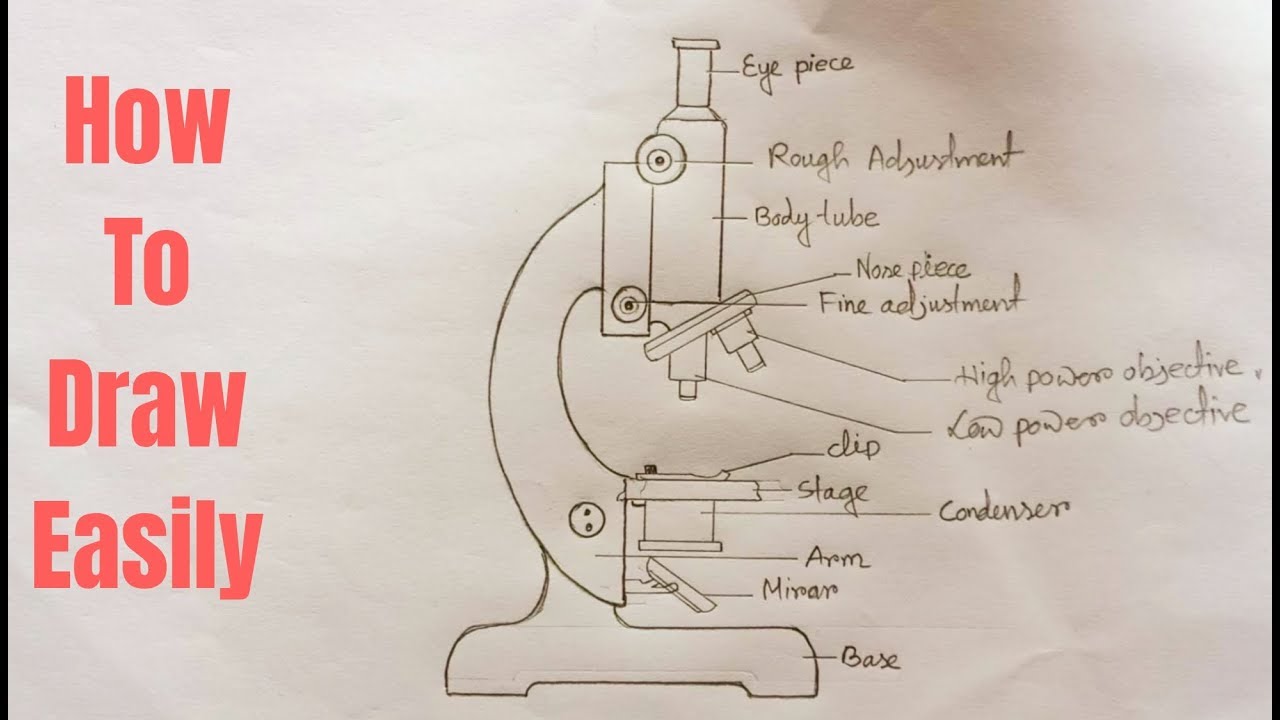 How
To
Draw
Easily
Eye piece
Rough Adjustment
Body-tube
Nose piece
Fine adjustment
High power objective.
Low power objective
clip
Stage
Condenser
Arm
Mirar
Base